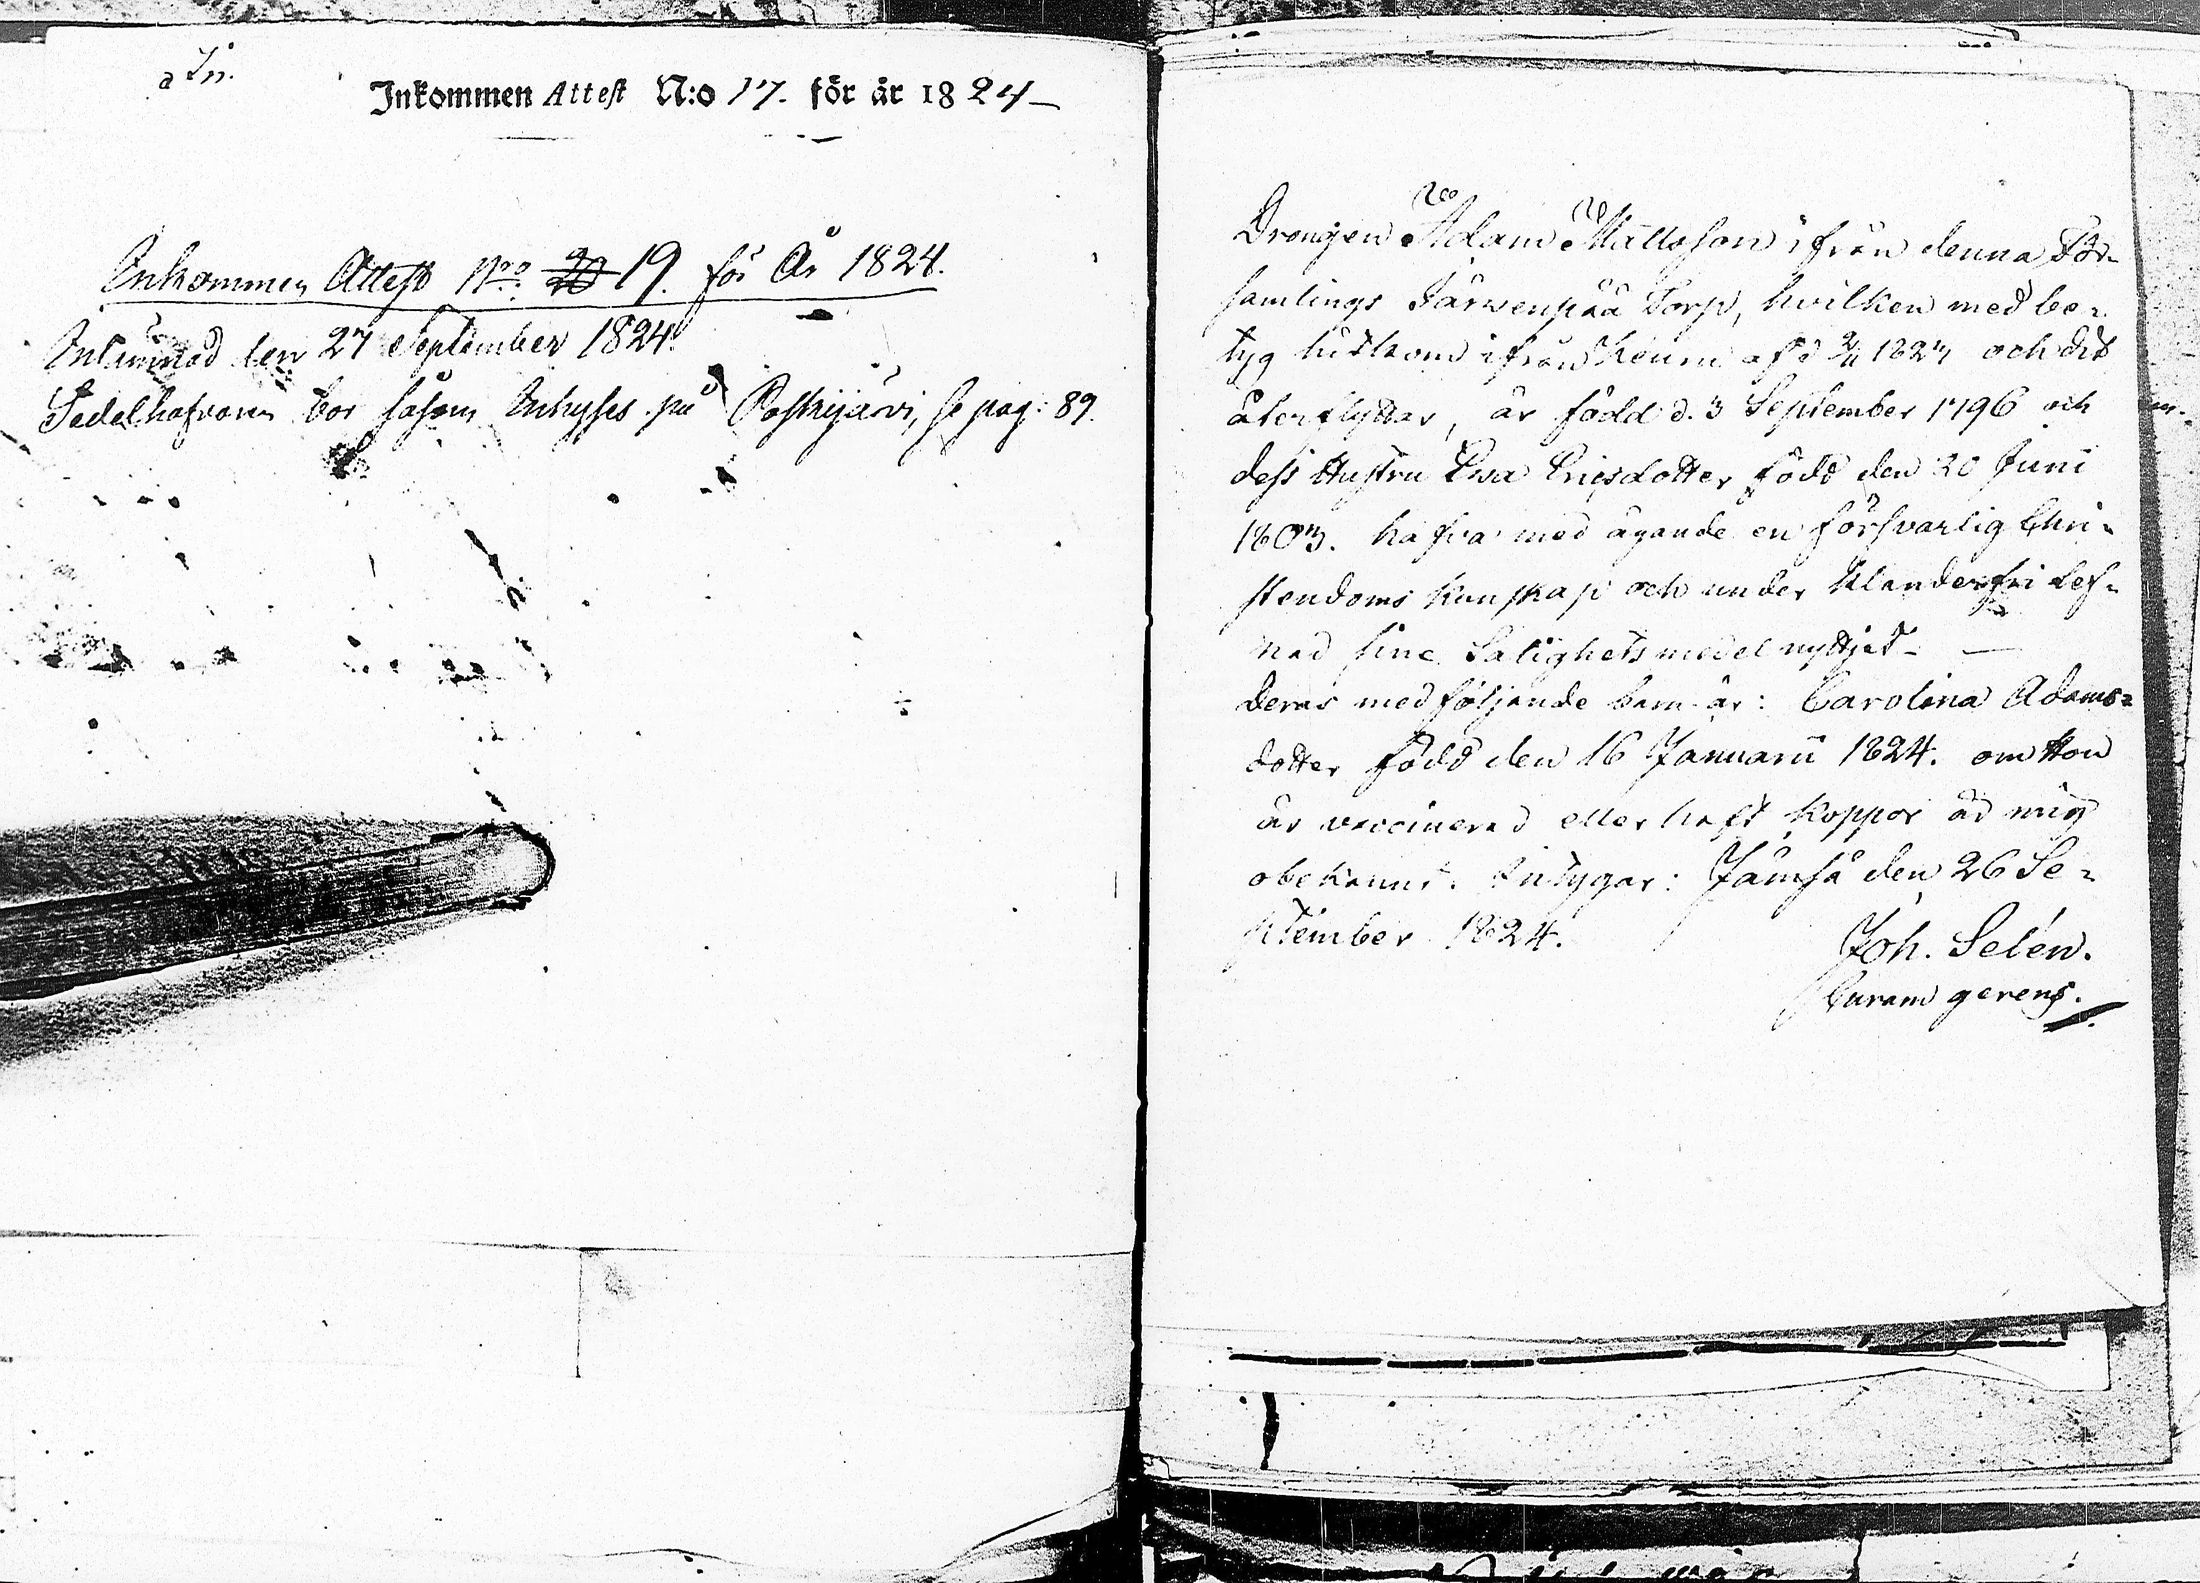 Inkommen Attest N:o 17. för år 1824
Inkommen Attest N:o 20 19. för År 1824.
Inlemnad den 27 September 1824.
Sedelhafvaren bor såsom Inhyses på Poskijärvi, se pag: 89.
Drengen Adam Mattsson ifrån denna För-
samlings Järvenpää Torp, hvilken med be-
tyg hitkom ifrån Keuru af d. 1823 och dit
återflyttar, är född d. 3 September 1796 och
dess Hustru Eva Ericsdotter född den 20 Juni
1803. hafva med ägande en försvarlig Chri-
stendoms kunskap och under klanderfri lef-
nad sine Salighets medel nyttjat.
deras medföljande barn är: Carolina Adams-
dotter född den 16 Januarii 1824. om Hon
är vaccinerad eller haft koppor är mig
obekannt. Intygar: Jämsä den 26 Se-
ptember 1824.
Joh. Selén.
Curam gerens.